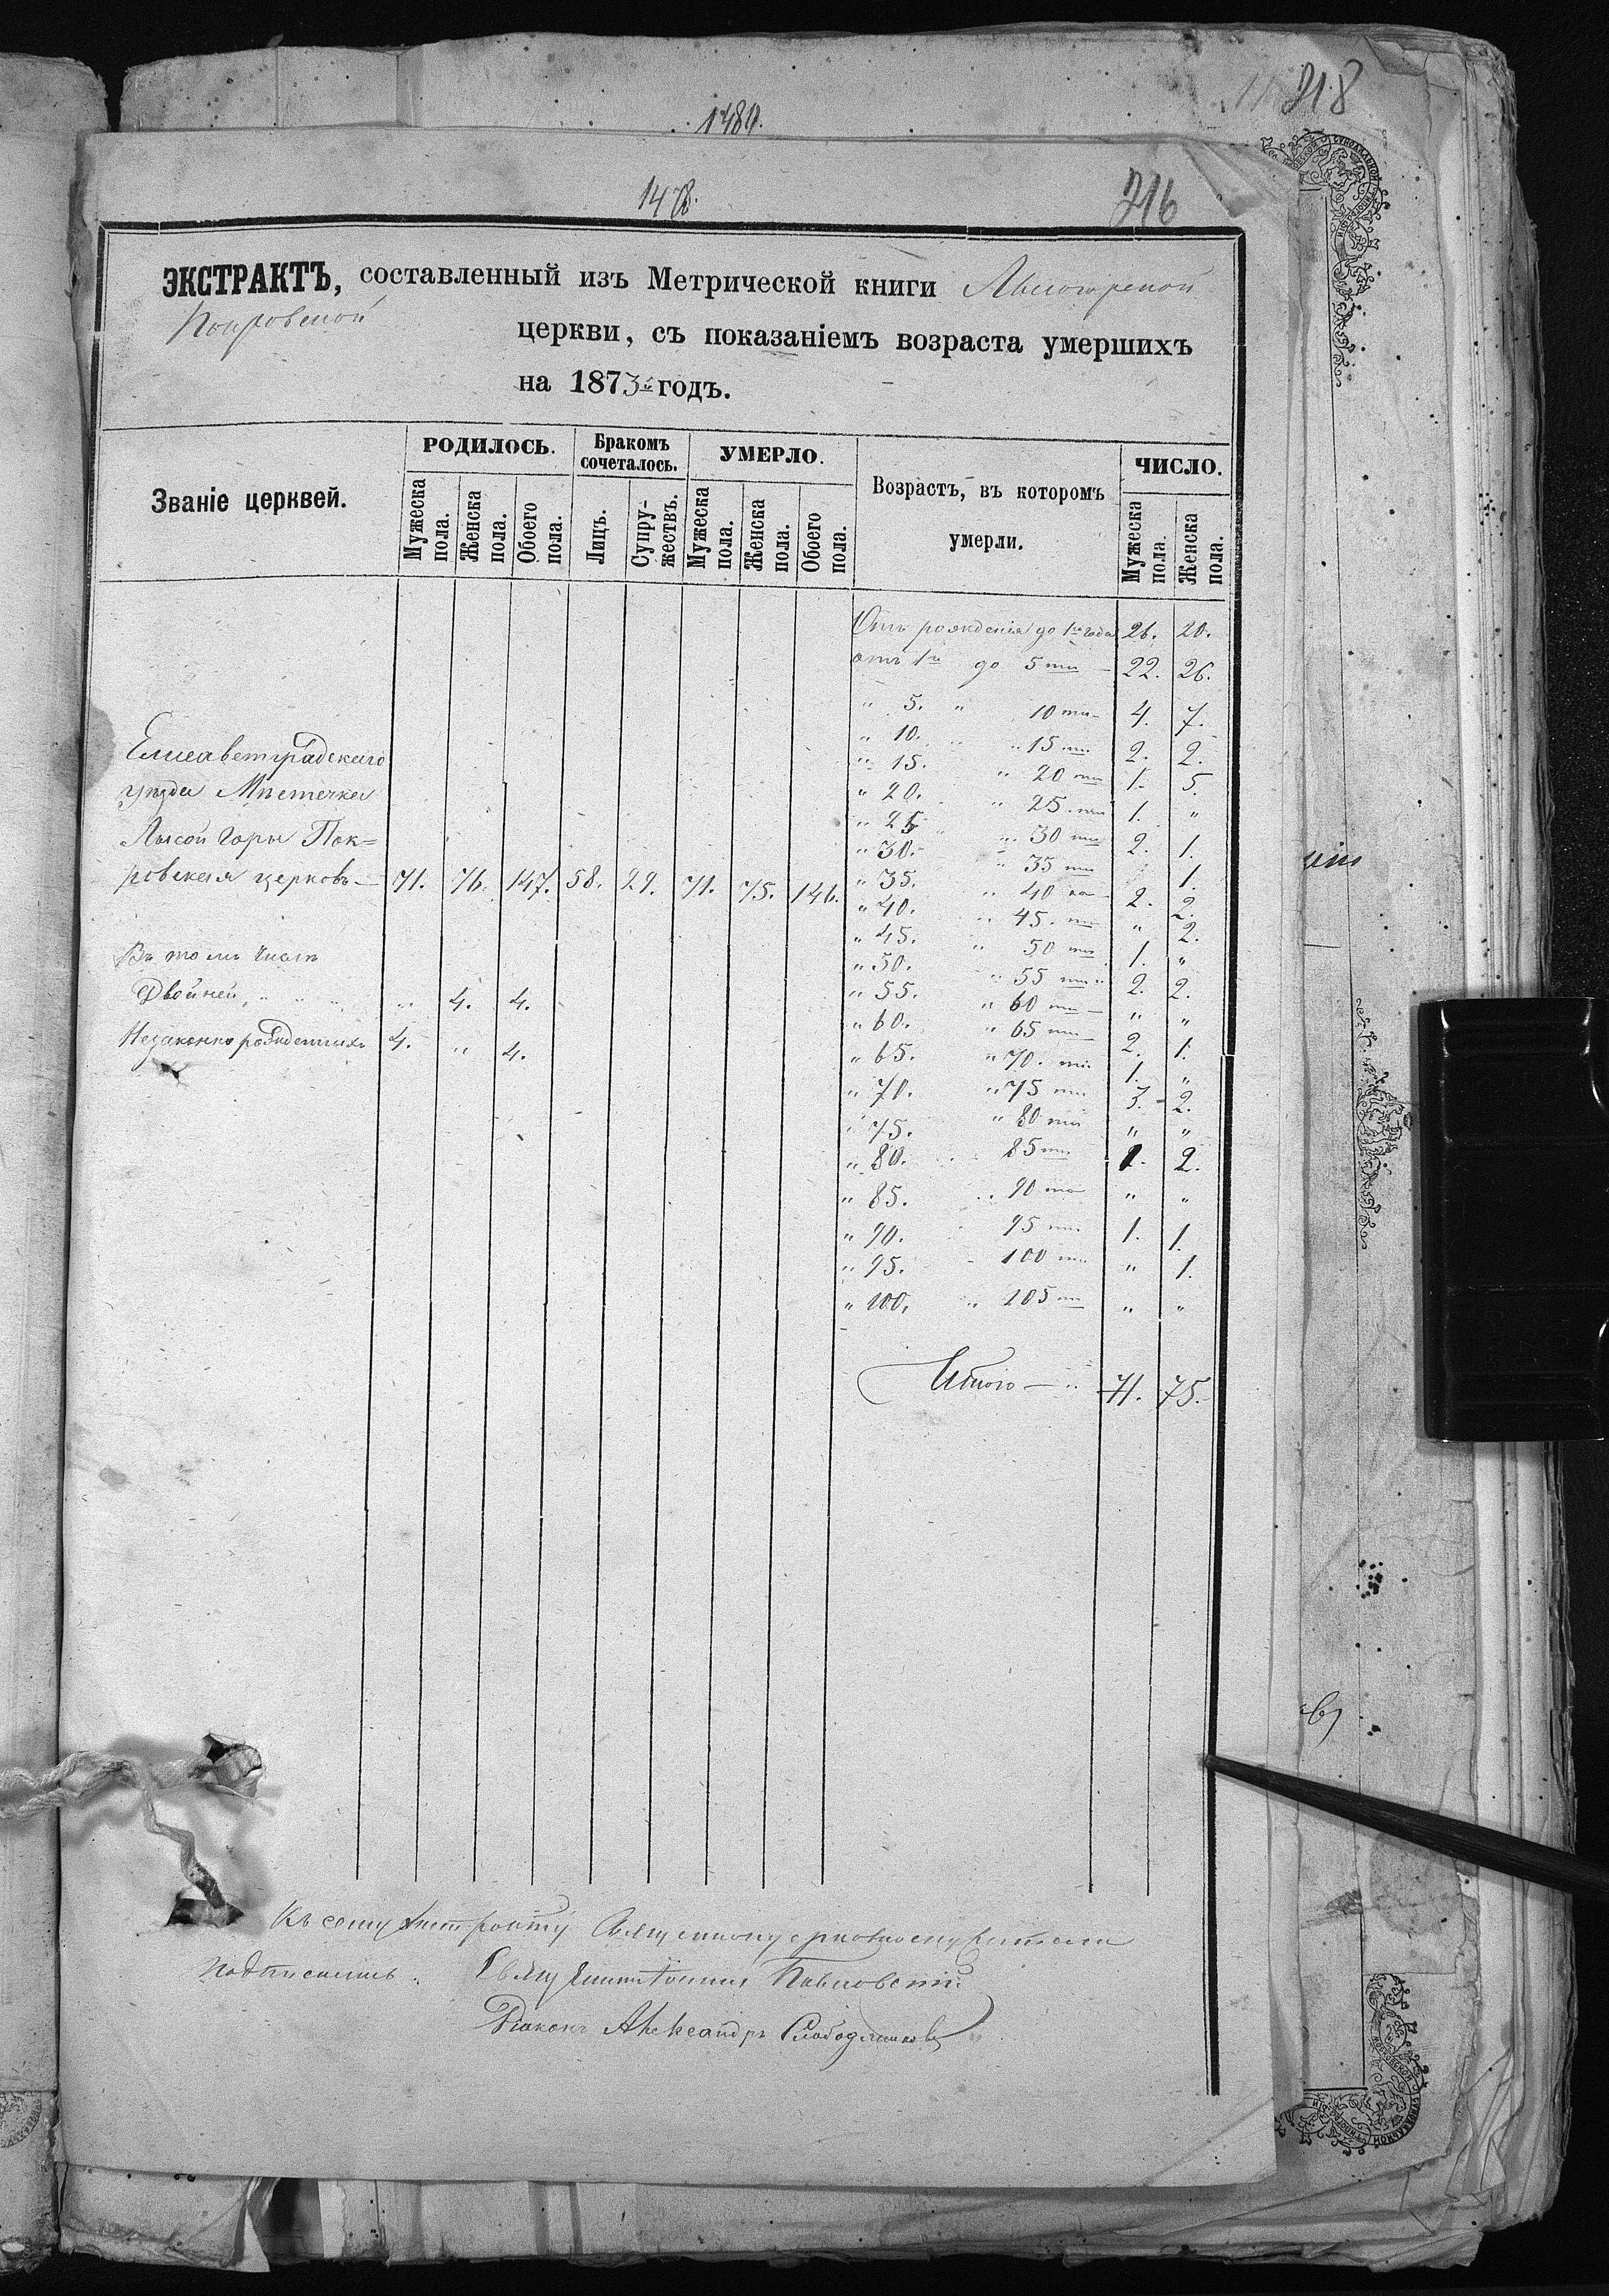 218
1480.
147
216
ЭКСТРАКТЪ, составленный изъ Метрической книги Лысогорской
Покровской церкви, съ показаніемъ возраста умершихъ
на 1873й годъ.
Званіе церквей.
РОДИЛОСЬ.
Бракомъ сочеталось.
УМЕРЛО.
Возрастъ, въ которомъ умерли.
ЧИСЛО.
Мужеска пола.
Женска пола.
Обоего пола.
Лицъ.
Супружествъ.
Мужеска пола.
Женска пола.
Обоего пола.
Мужеска пола.
Женска пола.
Елисаветградскаго
уѣзда Мѣстечка
Лысой Горы Пок=
ровская церковь — 71. 76. 147. 58. 29. 71. 75. 146.
Въ томъ числѣ
Двойней " " " " 4. 4.
Незаконнорожденныхъ 4. " 4.
Отъ рожденія до 1го года 26. 20.
отъ 1го до 5ти 22. 26.
" 5. " 10ти 4. 7.
" 10. " 15ти 2. 2.
" 15. " 20ти 1. 5.
" 20. " 25ти 1. "
" 25 " 30ти 2. 1.
" 30. " 35ти 1.
" 35. " 40ка 2. 2.
" 40. " 45ти " 2.
" 45. " 50ти 1. "
" 50. " 55ти 2. 2.
" 55. " 60ти " "
" 60. " 65ти 2. 1.
" 65. " 70ти 1. "
" 70. " 75ти 3. 2.
" 75. " 80ти " "
" 80. " 85ти 1. 2.
" 85. " 90то " "
" 90. " 95ти 1. 1.
" 95. " 100 " 1.
" 100. " 105ти " "
Итого — " 71. 75.
Къ сему экстракту Священноцерковнослужители
подписались:
Павловскій
Діаконъ Александръ